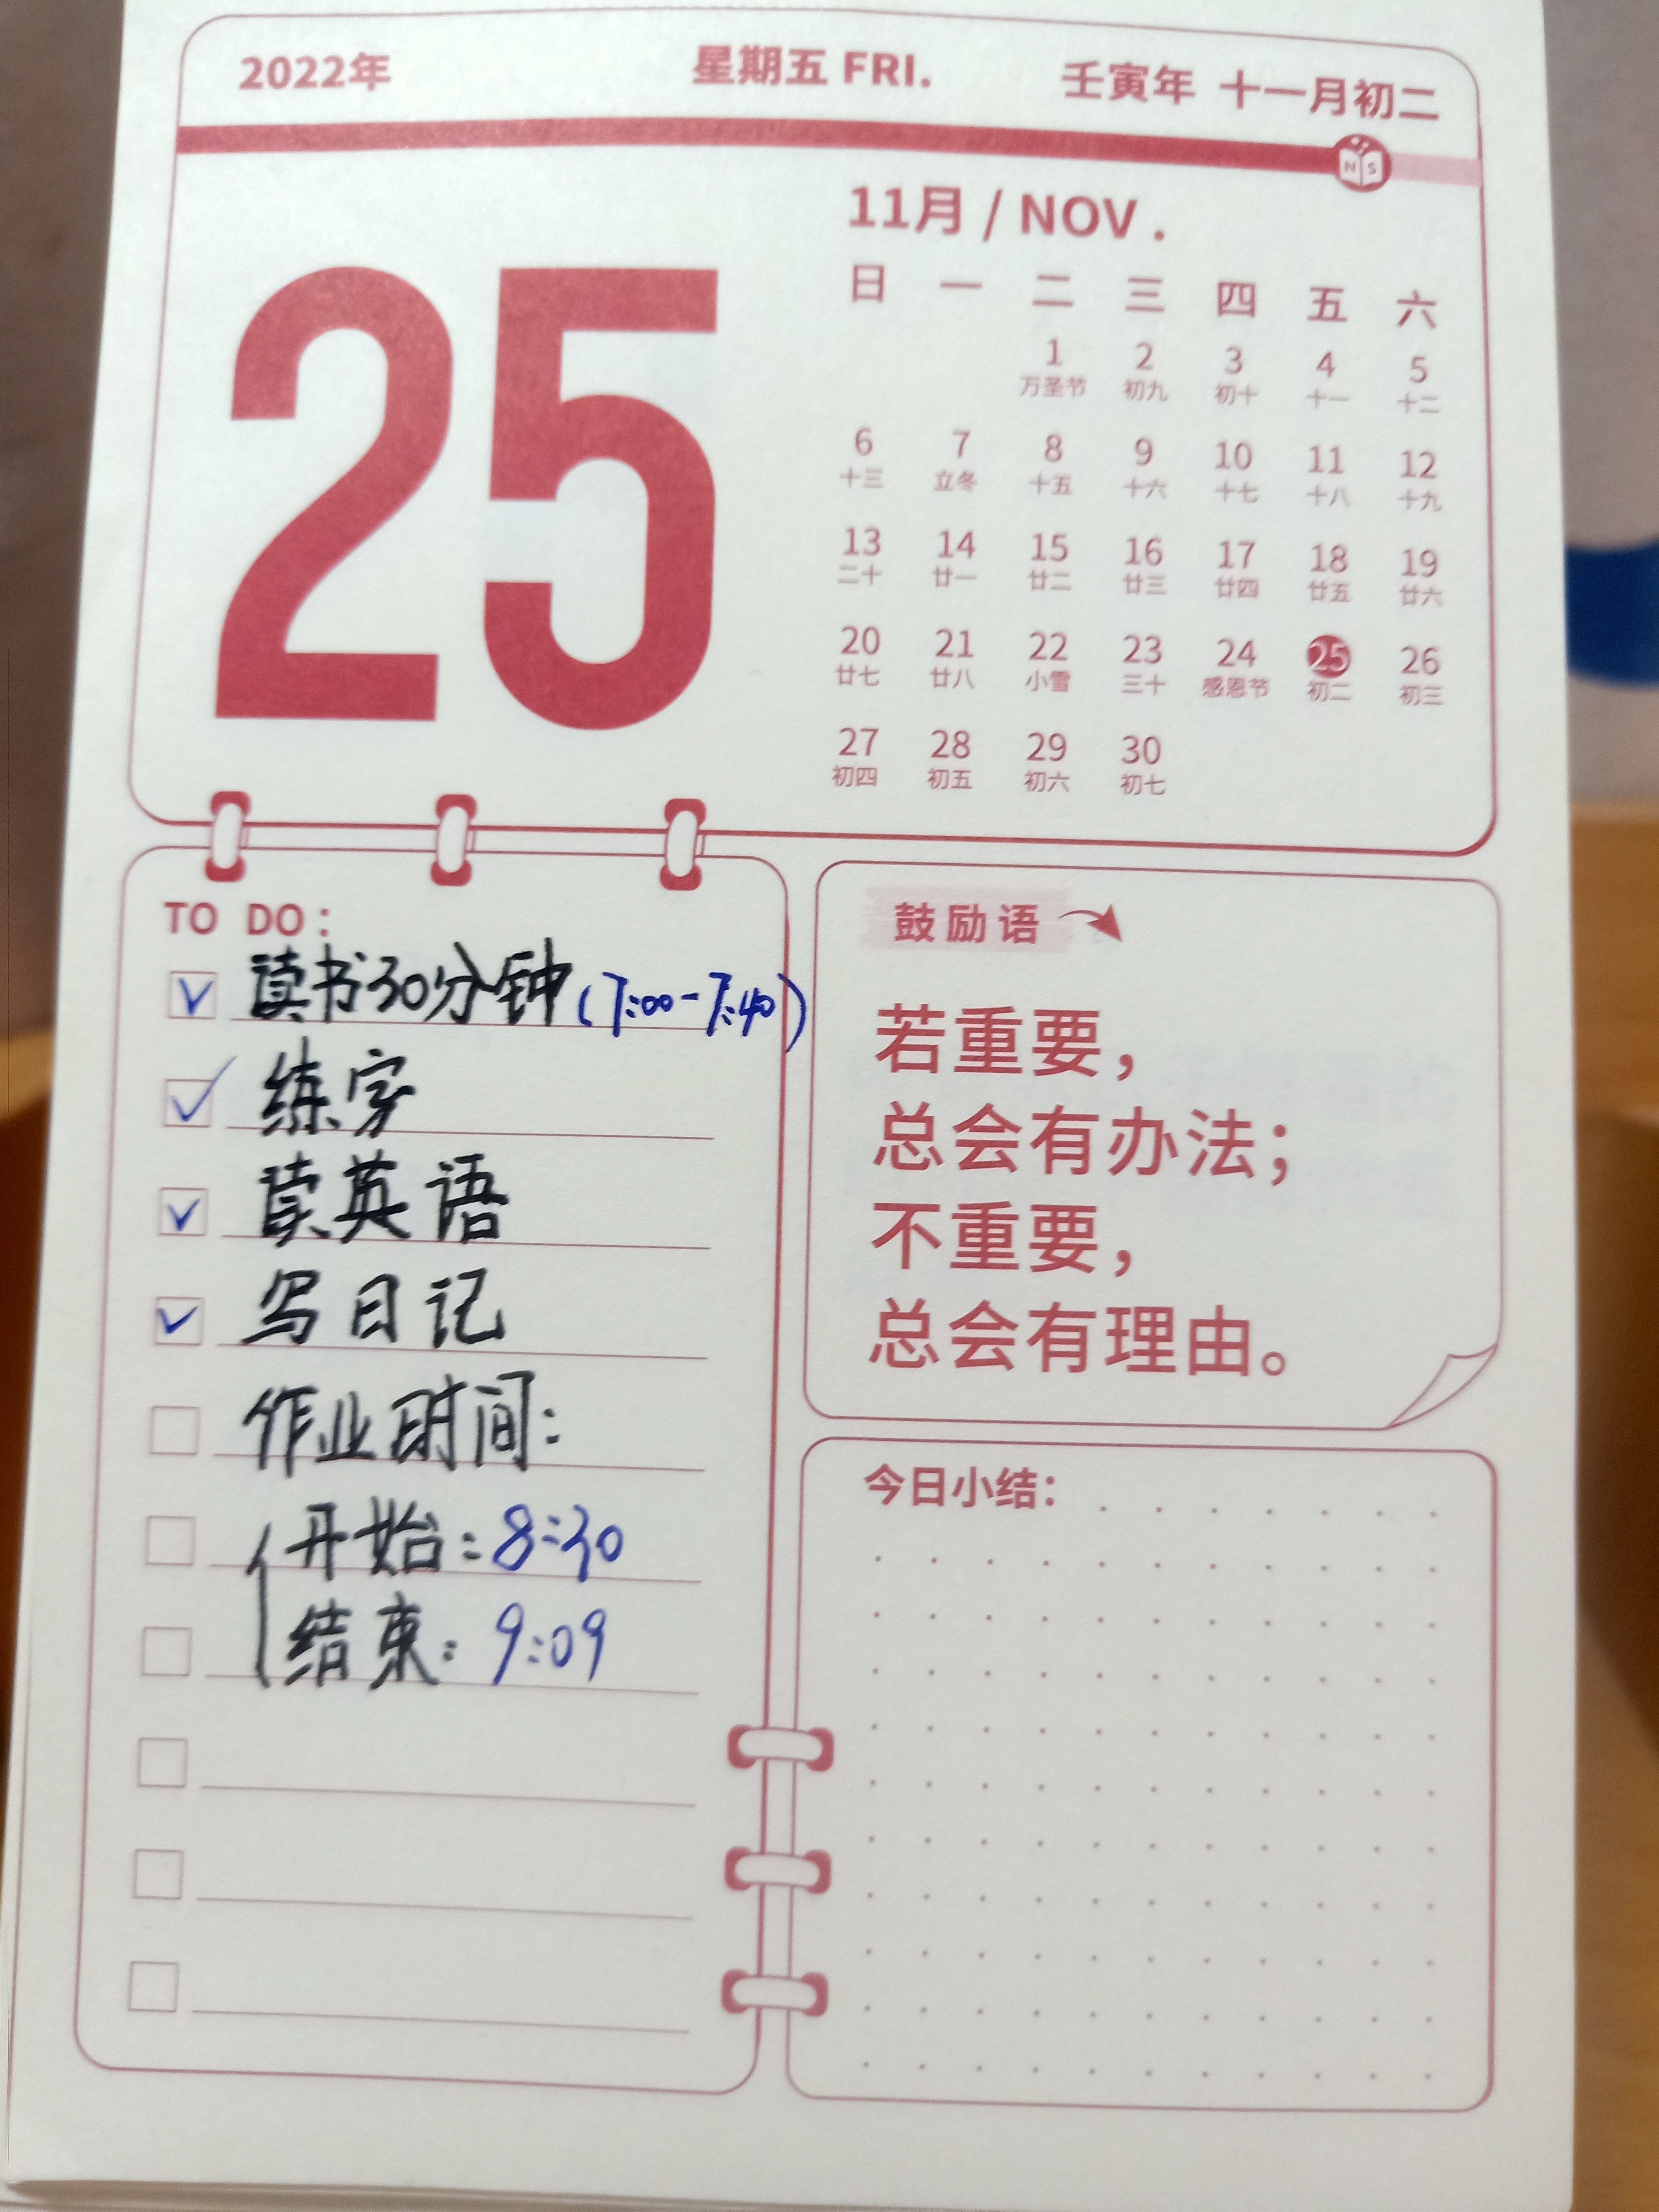 2022年 星期五 FRI. 壬寅年 十一月初二
N S
25
11月 / NOV .
日 一 二 三 四 五 六
1 2 3 4 5
万圣节 初九 初十 十一 十二
6 7 8 9 10 11 12
十三 立冬 十五 十六 十七 十八 十九
13 14 15 16 17 18 19
二十 廿一 廿二 廿三 廿四 廿五 廿六
20 21 22 23 24 25 26
廿七 廿八 小雪 三十 感恩节 初二 初三
27 28 29 30
初四 初五 初六 初七
TO DO :
读书30分钟(7:00-7:40)
练字
读英语
写日记
作业时间:
开始:8:30
结束:9:09
鼓励语
若重要，
总会有办法；
不重要，
总会有理由。
今日小结：